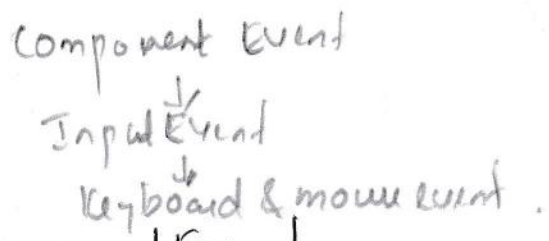 Component Event
↓
Input Event
↓
Keyboard & mouse event.